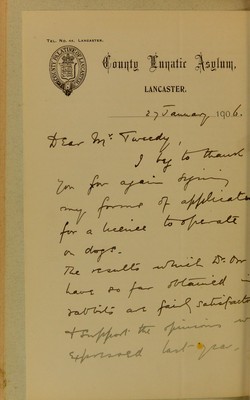 TEL. No. 66. LANCASTER.
County Lunatic Asylum,
LANCASTER.
27 January 1906.
Dear Mr Tweedy,
I beg to thank
you for again signing
my forms of applicatio
for a licence to operate
on dogs.
The results which Dr. Orr
have so far obtained
rabbits are fairly satisfacto
& support the opinions
expressed last year.